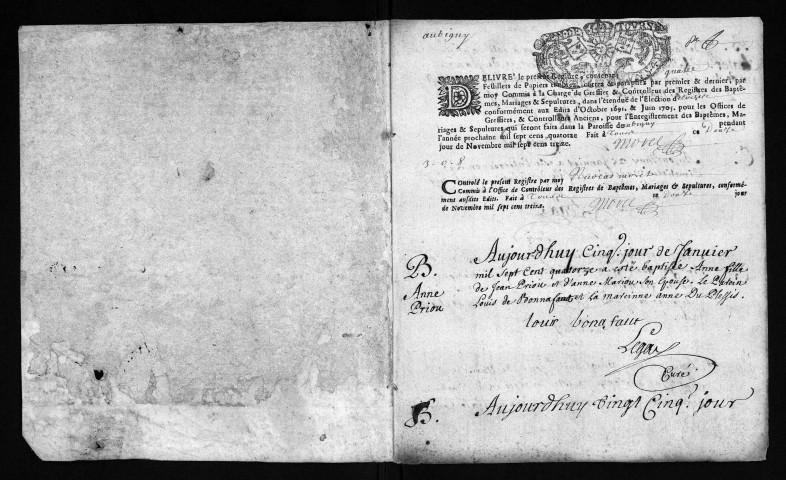 aubigny
TOURS
DELIVRÉ le present Registre, contenant quatre
Feüillets de Papiers timbrez, cottez & paraphez par premier & dernier, par
moy Commis à la Charge de Greffier & Controlleur des Registres des Baptê-
mes, Mariages & Sepultures, dans l'étenduë de l'Election
conformément aux Edits d'Octobre 1691. & Juin 1705. pour les Offices de
Greffiers, & Controlleurs Anciens, pour l'Enregistrement des Baptêmes, Ma-
riages & Sepultures qui seront faits dans la Paroisse de aubigny pendant
l'année prochaine mil sept cens quatorze Fait à ce Douze
jour de Novembre mil sept cens treize.
Controlé le present Registre par moy
Commis à l'Office de Contrôleur des Registres de Baptêmes, Mariages & Sepultures, conformé-
ment ausdits Edits. Fait à ce Douze jour
de Novembre mil sept cens treize.
B. Aujourdhuy Cinq.e jour de Janvier
mil Sept Cent quatorze a esté baptisée Anne fille
Anne Priou
de Jean Priou et d'anne Mariou Son Epouse. Le Parein
Louis de Bonnafont et la mareinne anne Du Plessis.
louis bonafaut
Legay
Curé
B. Aujourdhuy Vingt Cinq.e jour